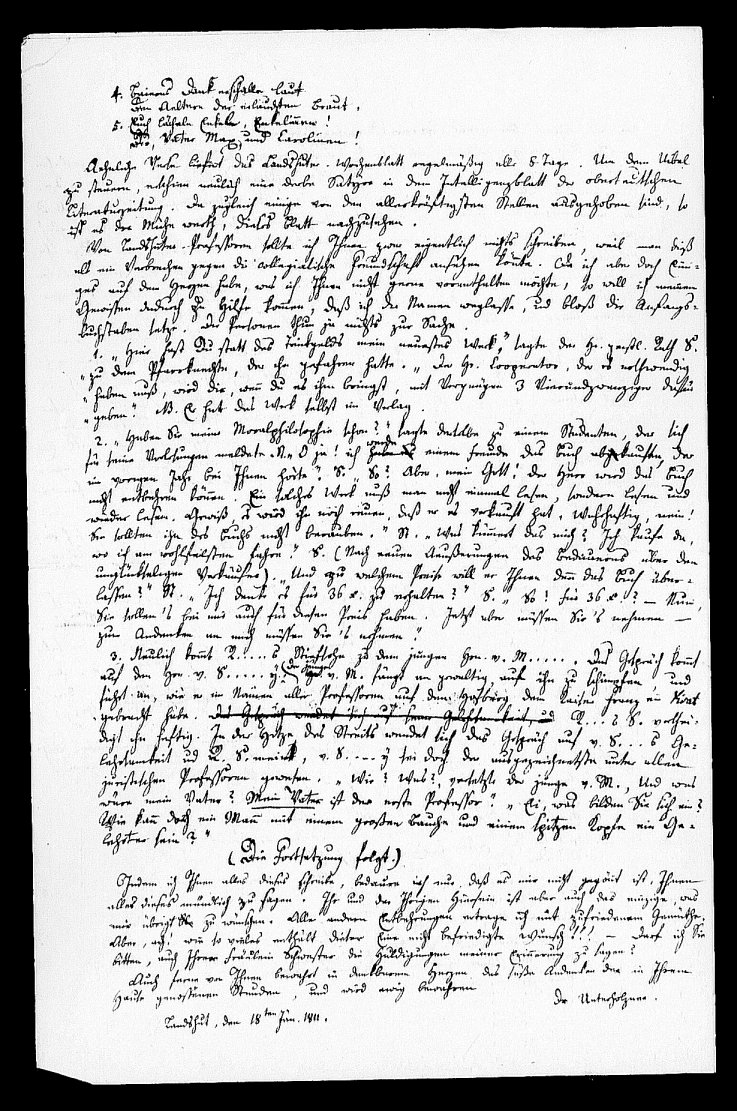 4. Baierns Dank erschalle laut
Den Aeltern der erlauchten Braut.
5. Euch lächeln Enkel, Enkelinnen!
Vater Max, und Carolinen!
Aehnliche Verse liefert das Landshuter-Wochenblatt regelmäßig alle 8 Tage. Um dem Uebel
zu steuern, erschien neulich eine derbe Satyre in dem Intelligenzblatt der oberteutschen
Literaturzeitung. Da zugleich einige von den allerkräftigsten Stellen ausgehoben sind, so
ist es der Mühe werth, dieses Blatt nachzusehen.
Von Landshuter-Professoren sollte ich Ihnen zwar eigentlich nichts schreiben, weil man dieß
als ein Verbrechen gegen die collegialische Freundschaft ansehen könnte. Da ich aber doch Eini-
ges auf dem Herzen habe, was ich Ihnen nicht gerne vorenthalten möchte, so will ich meinem
Gewissen dadurch zu Hilfe kommen, daß ich die Namen weglasse, und bloß die Anfangs-
buchstaben setze. Die Personen thun ja nichts zur Sache.
1. „Hier hast Du statt des Trinkgelds mein neuestes Werk," sagte der Hr. geistl. Rath S.
„zu dem Pfarrknechte, der ihn gefahren hatte. „Der Hr. Cooperator, der es nothwendig
„haben muß, wird dir, wenn du es ihm bringst, mit Vergnügen 3 Vierundzwanziger dafür
„geben". NB. Er hat das Werk selbst im Verlag.
2. „Haben Sie meine Moralphilosophie schon?" sagte derselbe zu einem Studenten, der sich
für seine Vorlesungen meldete. N. „O ja! ich werde einem Freunde das Buch abkaufen, der
im vorigen Jahr bei Ihnen hörte". S. „So? Aber, mein Gott! der Herr wird das Buch
nicht entbehren können. Ein solches Werk muß man nicht einmal lesen, sondern lesen und
wieder lesen. Gewiß es wird ihn noch reuen, daß er es verkauft hat. Wahrhaftig, nein!
Sie sollten ihn des Buchs nicht berauben." N. „Was kümmert das mich? Ich kaufe da,
wo ich am wohlfeilsten fahre." S. (Nach neuen Aeußerungen des Bedauerns über den
unglückseligen Verkäufer). „Und zu welchem Preise will er Ihnen denn das Buch über-
lassen?" N. „Ich denke es für 36 x. zu erhalten?" S. „So! für 36 x.? — Nun,
Sie sollen's bei mir auch für diesen Preis haben. Jetzt aber müssen Sie's nehmen —
zum Andenken an mich müssen Sie's nehmen."
3. Neulich kommt R.....s Stiefsohn zu dem jungen Hrn. v. M...... Das Gespräch kommt
auf den Hrn. v. S.....y. Der junge v. M. fängt an gewaltig auf ihn zu schimpfen und
führt an, wie er im Namen aller Professoren auf dem Hofberg dem Kaiser Franz ein Vivat
gebracht habe. Das Gespräch wendet sich auf seine Gelehrsamkeit, und R....s S. verthei-
digt ihn heftig. In der Hitze des Streits wendet sich das Gespräch auf v. S....s Ge-
lehrsamkeit und R. S. meint, v. S....y sei doch der ausgezeichnetste unter allen
juristischen Professoren gewesen. „Wie? Was?, versetzte der junge v. M., Und was
wäre mein Vater? Mein Vater ist der erste Professor". „Ei, was bilden Sie sich ein?
Wie kann doch ein Mann mit einem großen Bauche und einem spitzen Kopfe ein Ge-
lehrter sein?"
(Die Fortsetzung folgt.)
Indem ich Ihnen alles dieses schreibe, bedaure ich nur, daß es mir nicht gegönnt ist, Ihnen
alles dieses mündlich zu sagen. Ihr und der Ihrigen Hiersein ist aber auch das einzige, was
mir übrigt zu wünschen. Alle andern Entbehrungen ertrage ich mit zufriedenem Gemüthe.
Aber, ach! wie so vieles enthält dieser Eine nicht befriedigte Wunsch!!! — Darf ich Sie
bitten, auch Ihrer Fräulein Schwester die Huldigungen meiner Erinnerung zu sagen?
Auch ferne von Ihnen bewahrt in dankbarem Herzen das süße Andenken der in Ihrem
Hause genossenen Stunden, und wird ewig bewahren
Dr. Unterholzner.
Landshut, den 18ten Jän. 1811.